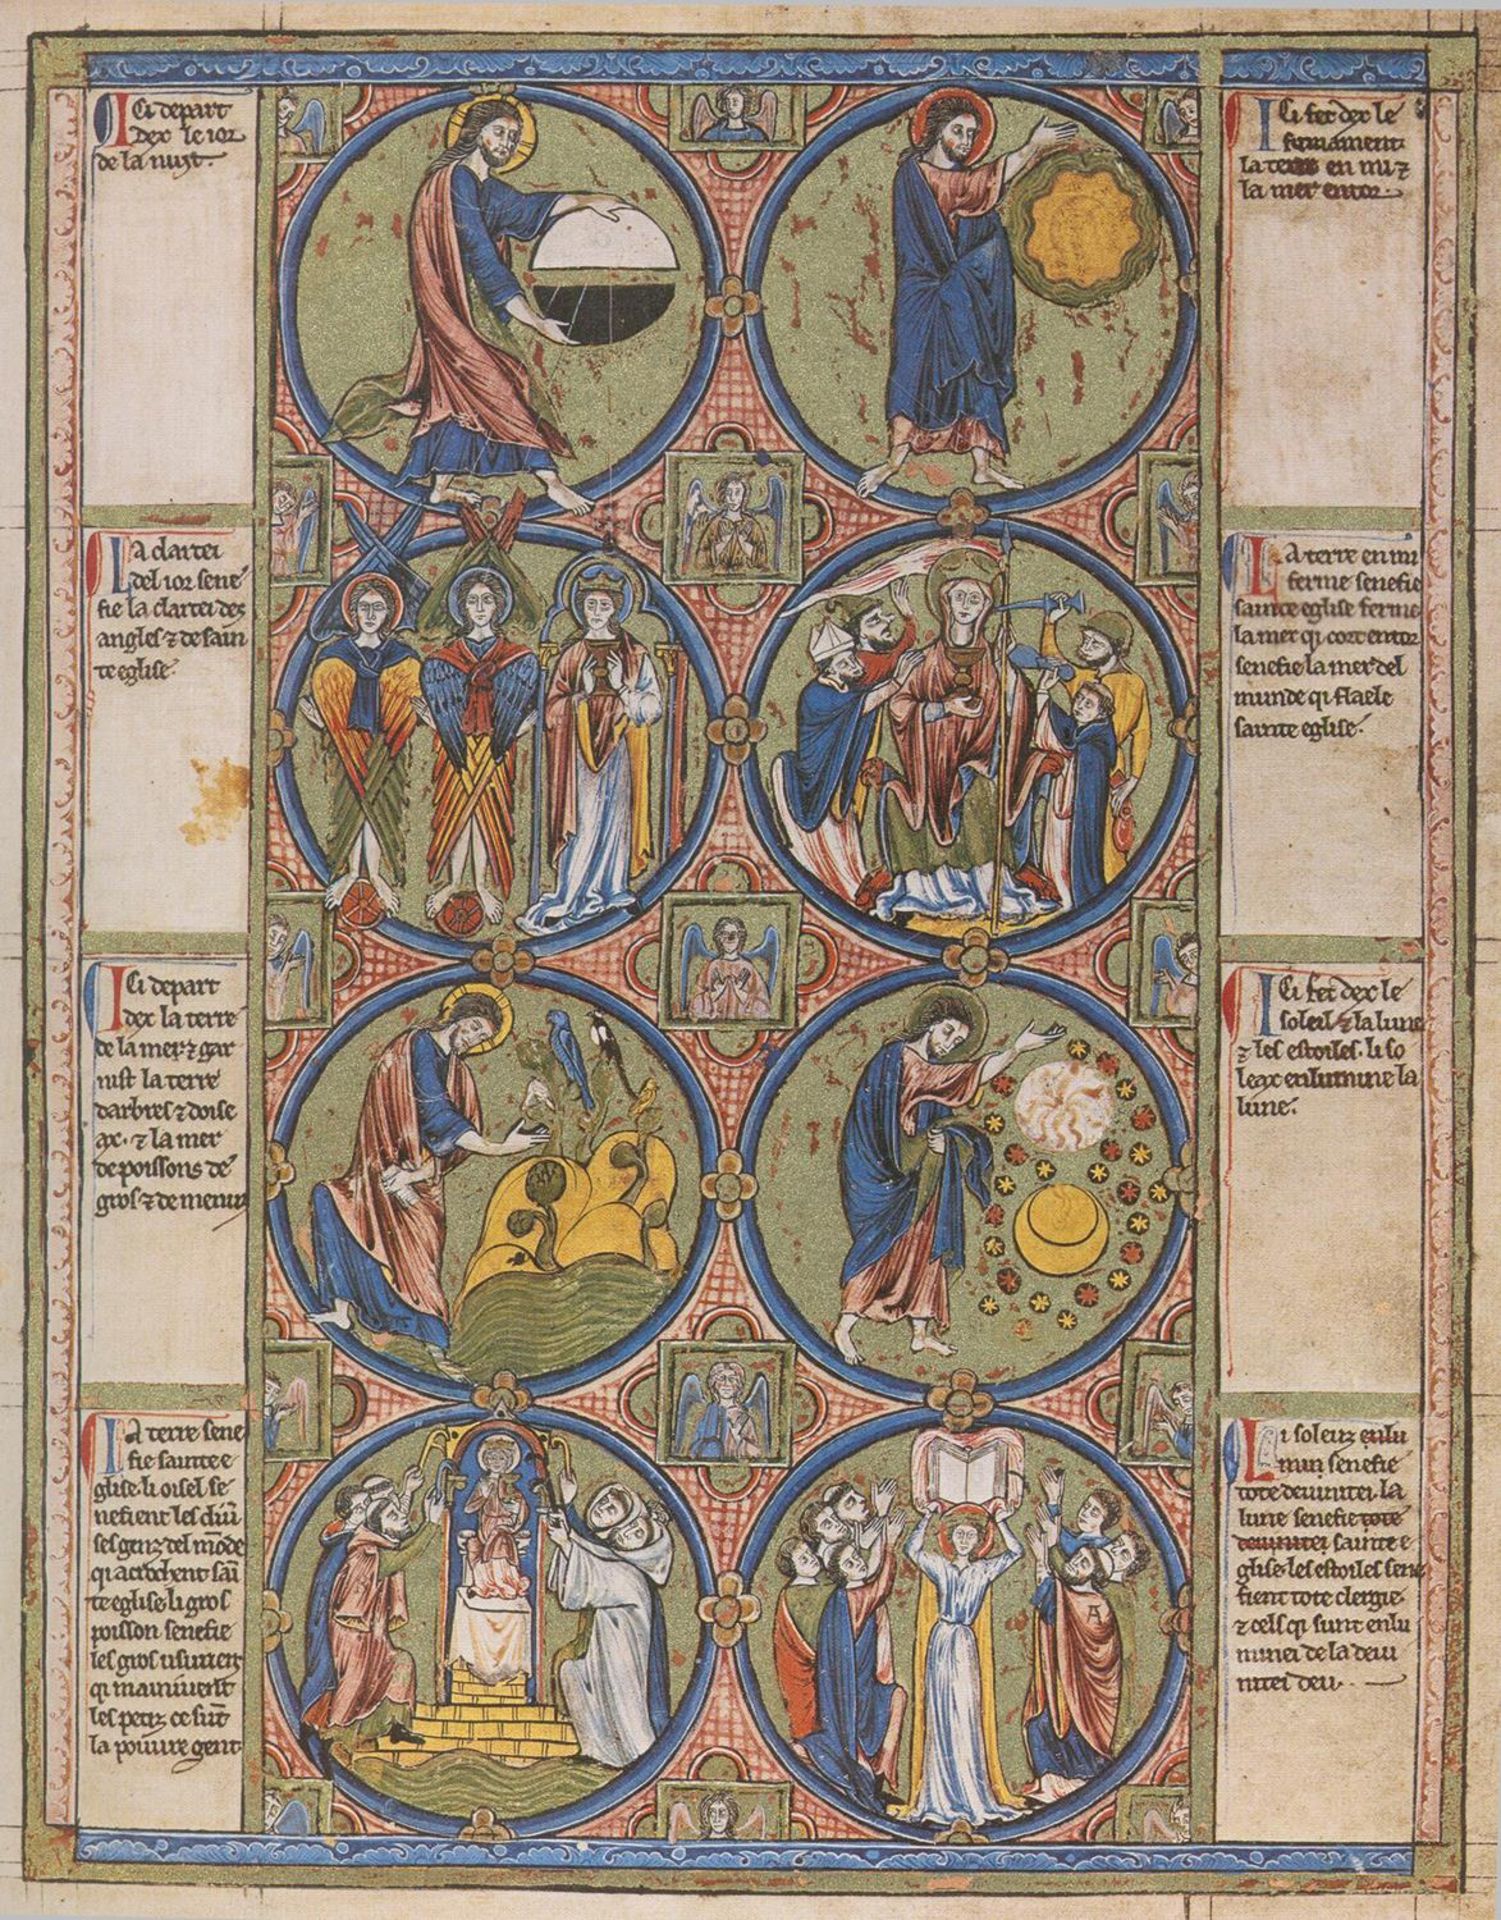 Ici depart
dex le ior
de la nuyt
La clartei
del ior sene
fie la clartei des
angles ⁊ de sain
te eglise.
Ici depart
dex la terre
de la mer ⁊ gar
nist la terre
darbres ⁊ doise
ax. ⁊ la mer
de poissons de
gros ⁊ de menuz
La terre sene
fie sainte e
glise. li oisel se
nefient les diũ
ses genz del mõde
qi acrochent saĩ
te eglise. li gros
poisson senefie
les gros usuriers
qi mainiuent
les petiz ce sũt
la pouure gent
Ici fet dex le
firmament
la terre en mi ⁊
la mer entor.
La terre en mi
ferme senefie
sainte eglise ferme
la mer qi cort entor
senefie la mer del
munde qi flaele
sainte eglise.
Ici fet dex le
soleil ⁊ la lune
⁊ les estoiles. li so
leax enlumine la
lune.
Li soleiz enlu
mini senefie
tote deuinitei. la
lune senefie tote
deuinitei sainte e
glise. les estoiles sene
fient tote clergie
⁊ cels qi sunt enlu
minei de la deui
nitei deu.
A